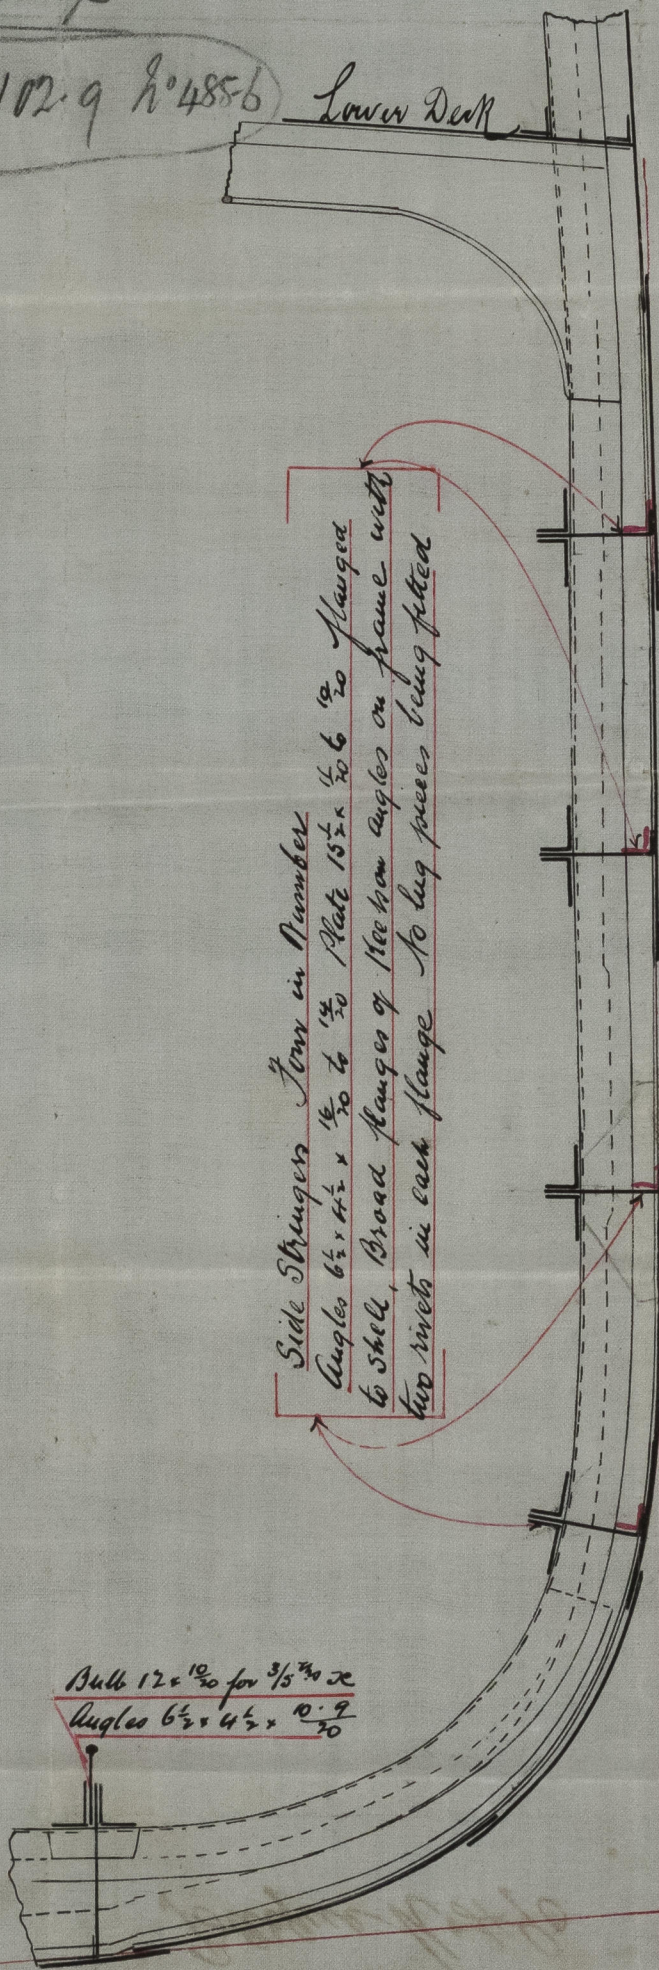 102.9 No 485-6
Lower Deck
Side Stringers Four in Number
Angles 6½ × 4½ × 16/20 to 14/20 Plate 15½ × 11/20 to 10/20 flanged
to Shell, Broad flanges of Keelson angles on frame with
two rivets in each flange No lug pieces being fitted
Bulb 12 × 10/20 for 3/5
Angles 6½ × 4½ × 10.9/20